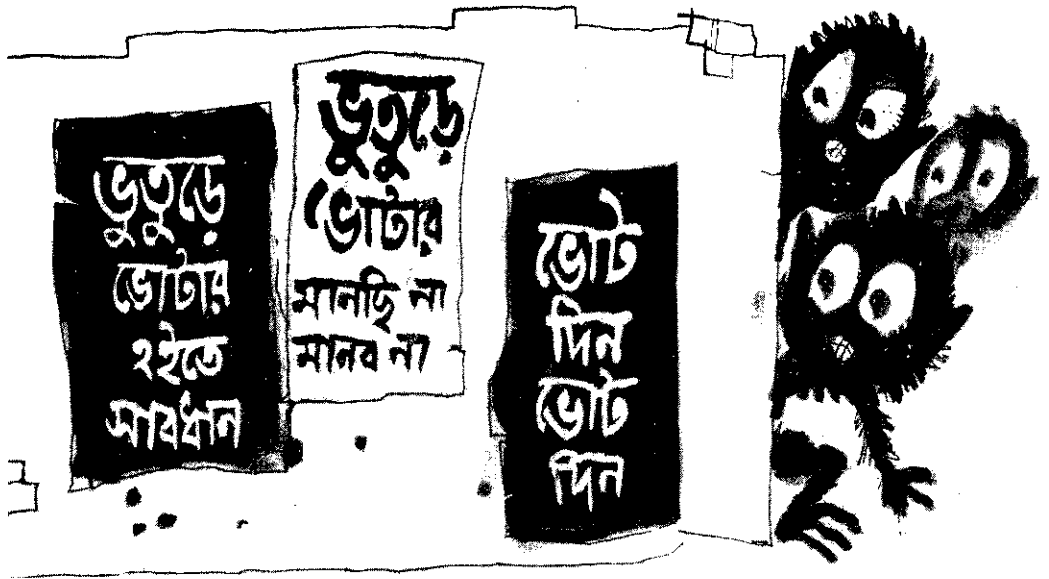 ভুতুড়ে
ভোটার
হইতে
সাবধান
ভুতুড়ে
ভোটার
মানছি না
মানব না
ভোট
দিন
ভোট
দিন